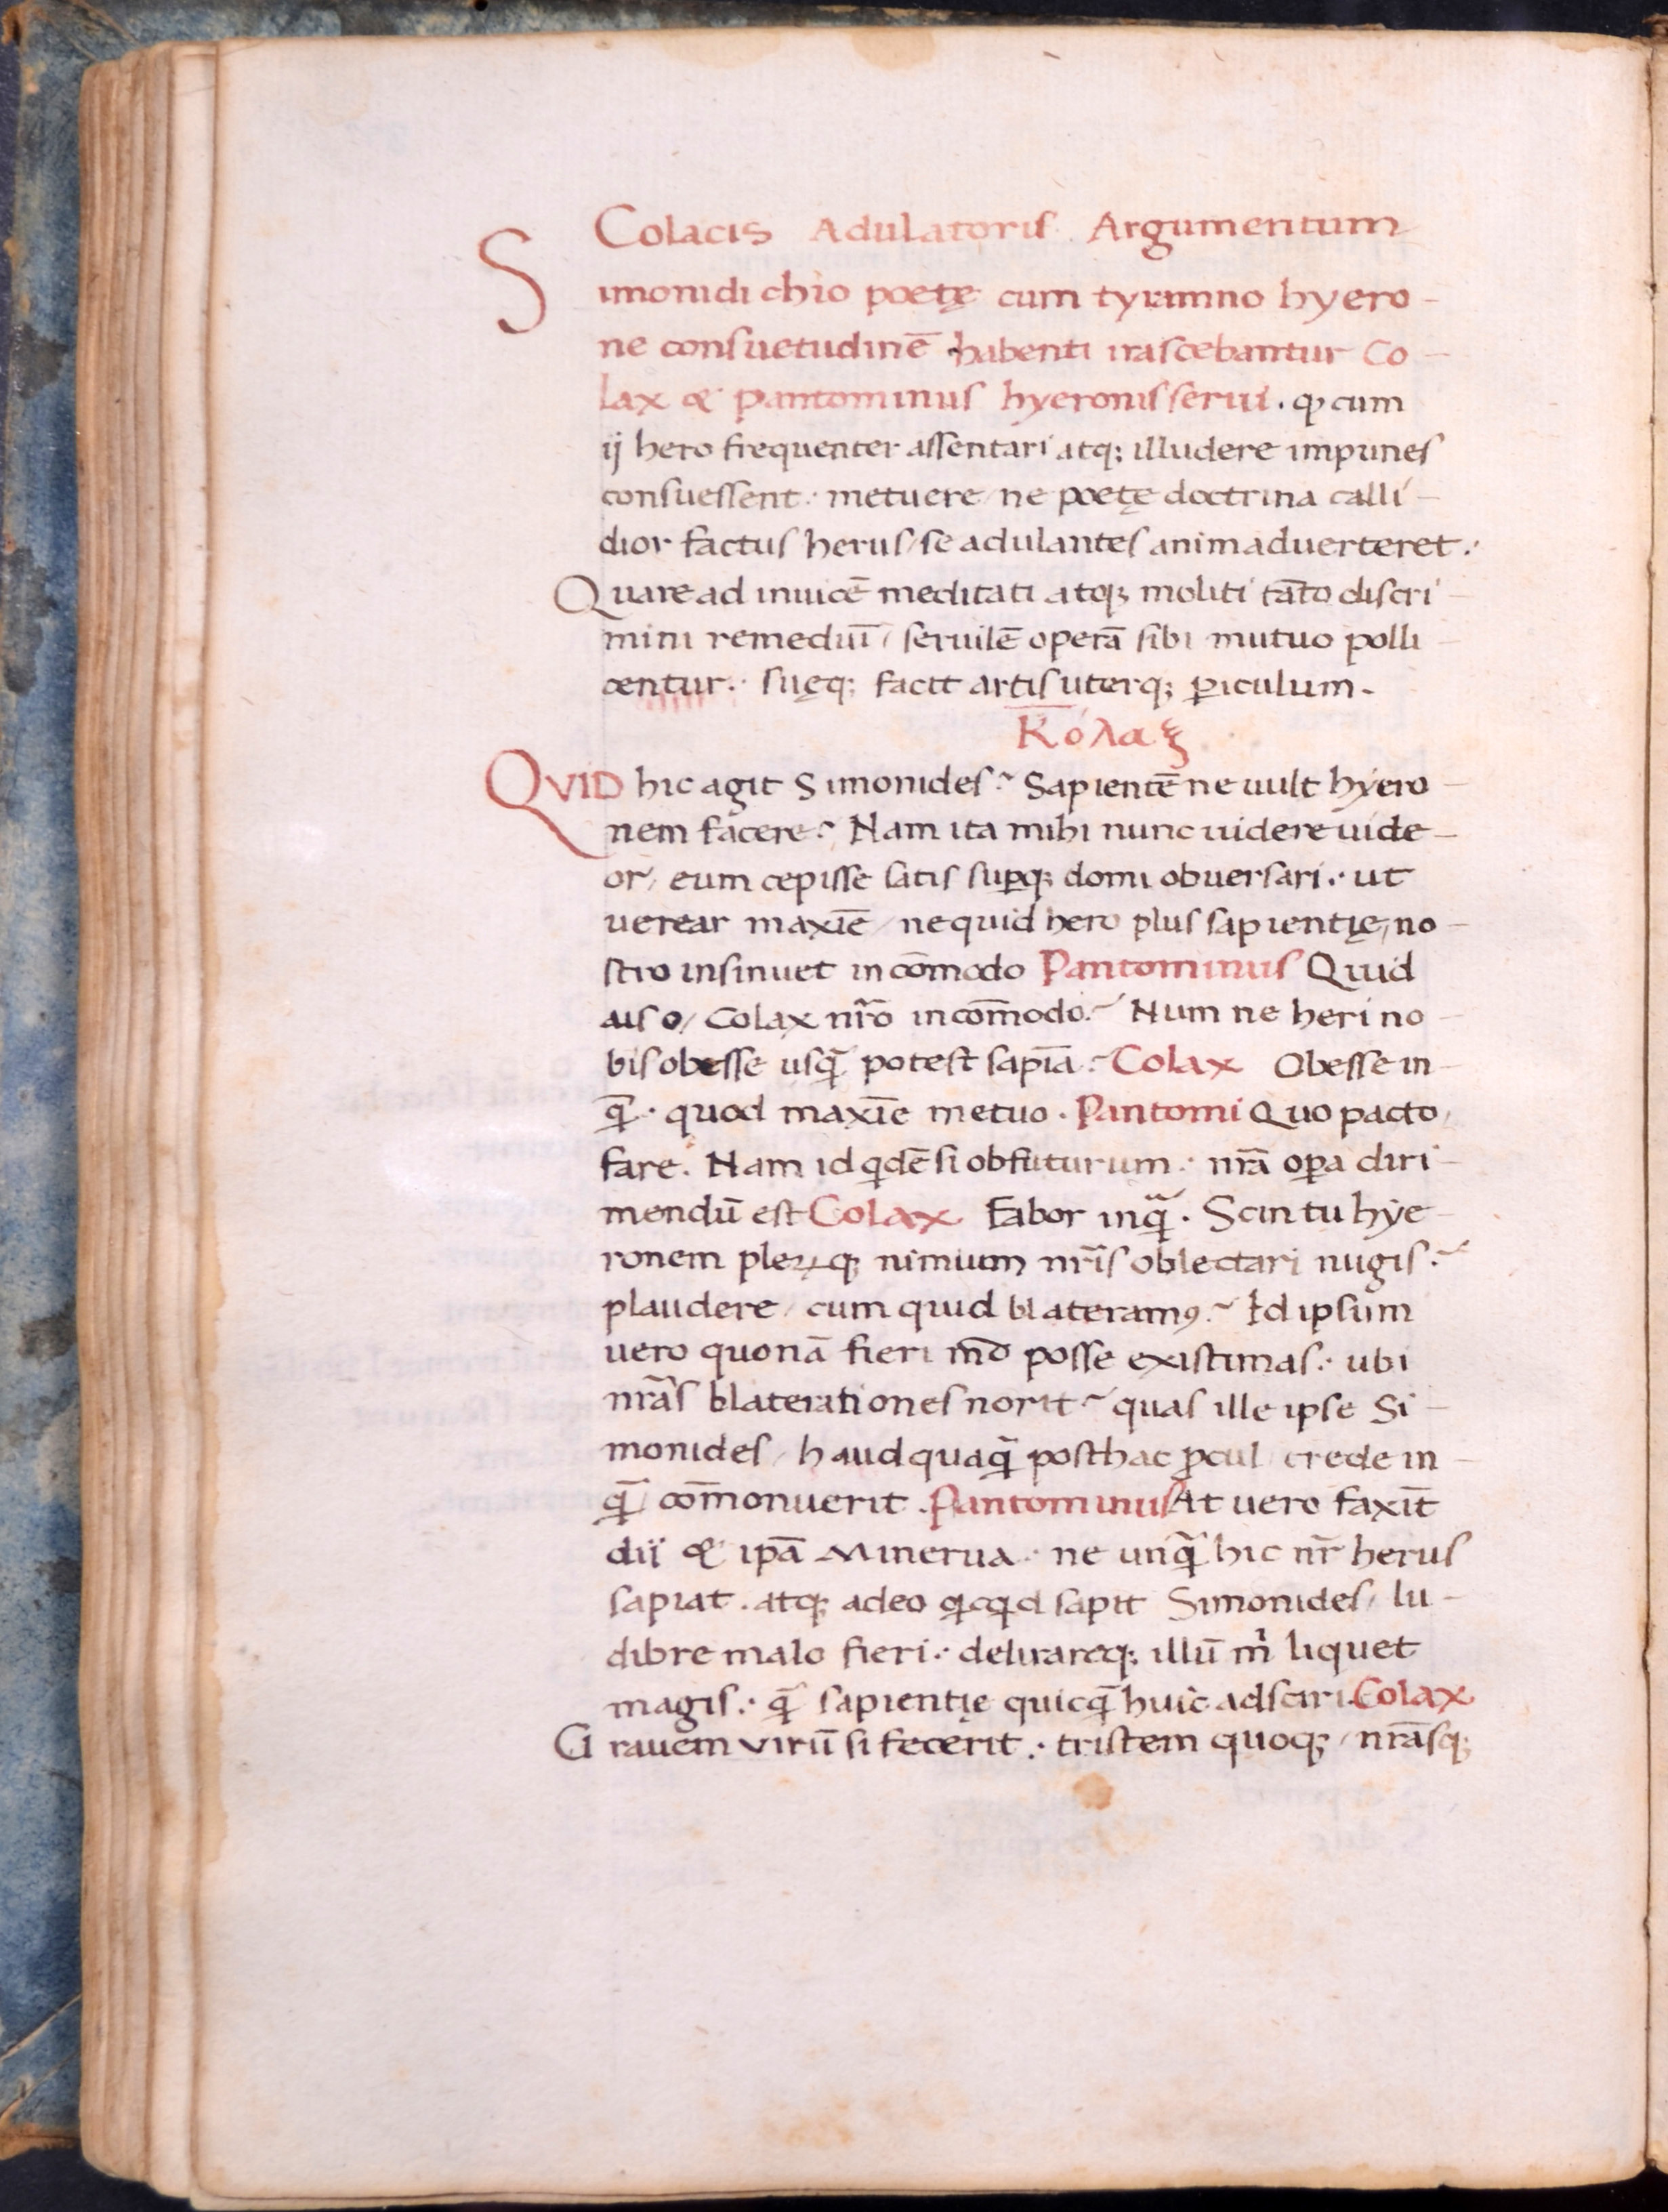 Colacis Adulatoris Argumentum
Simonidi chio poetę cum tyranno hyero-
ne consuetudinē habenti irascebantur Co-
lax & Pantominus hyeronis serui. ꝙ cum
ij hero frequenter assentari atq; illudere impunes
consuessent: metuere / ne poetę doctrina calli-
dior factus herus / se adulantes animaduerteret.
Quare ad inuicē meditati atq; moliti tāto discri-
mini remediū / seruilē operā sibi mutuo polli-
centur. suęq; facit artis uterq; ꝑiculum.
Κόλαξ
QVID hic agit Simonides? Sapientē ne uult hyero-
nem facere? Nam ita mihi nunc uidere uide-
or / eum cepisse satis suꝑq; domi obuersari: ut
uerear maxīe / nequid hero plus sapientię / no-
stro insinuet incōmodo Pantominus Quid
ais o / Colax nr̄o incōmodo? Num ne heri no-
bis obesse usq̄ potest sapīa? Colax Obesse in-
q̄: quod maxīe metuo. Pantomi Quo pacto /
fare. Nam id qdē si obfuturum: nrā oꝑa diri-
mendū est Colax Fabor inq̄. Scin tu hye-
ronem pleꝝq; nimium nrīs oblectari nugis?
plaudere / cum quid blateramꝰ? Id ipsum
uero quonā fieri mō posse existimas: ubi
nrās blaterationes norit? quas ille ipse Si-
monides / haudquaq̄ posthac ꝓcul / crede in-
q̄ / cōmonuerit. Pantominus At uero faxīt
dii & ipā Minerua: ne unq̄ hic nr̄ herus
sapiat. atq; adeo qcqd sapit Simonides / lu-
dibre malo fieri: delirareq; illū m̄ liquet
magis: q̄ sapientię quicq̄ huic adsciri. Colax
Grauem virū si fecerit: tristem quoq; / nrāsq;